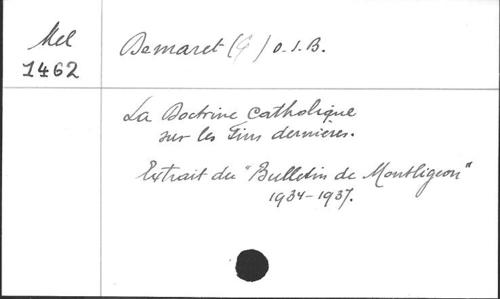 Mel
1462
Demaret (G) O.S.B.
La Doctrine Catholique
sur les Fins dernières.
Extrait du "Bulletin de Montligeon"
1934-1937.